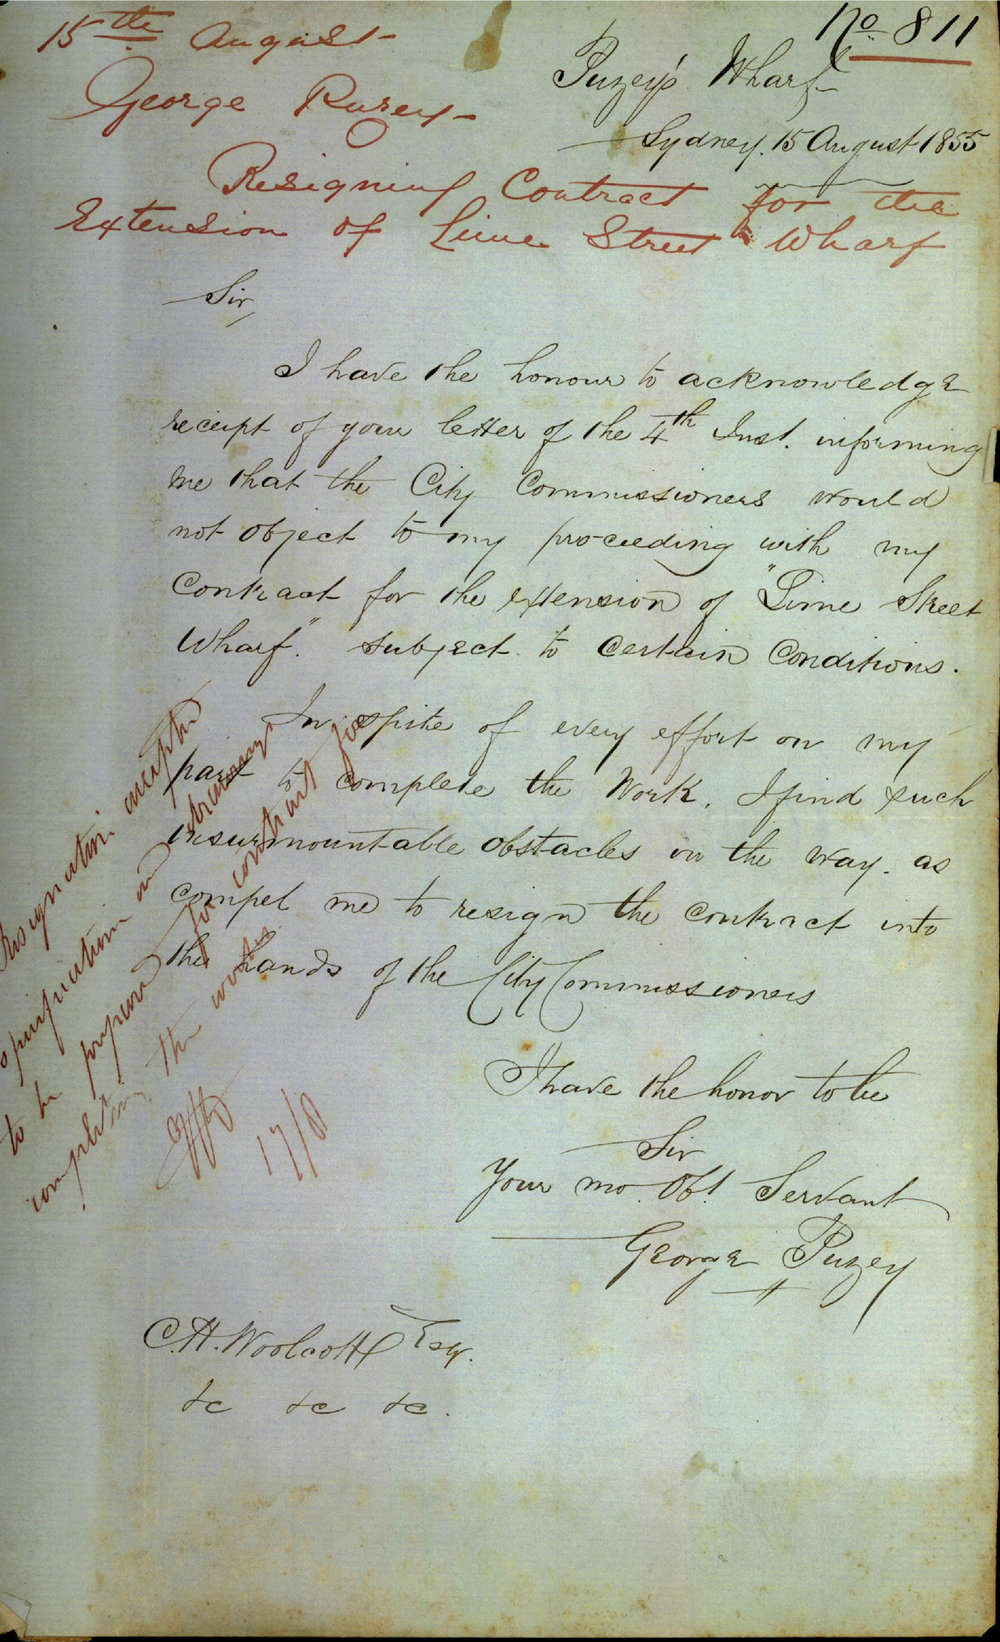 No 811
15th August
George Pusey
Resigning Contract for the
Extension of Lime Street Wharf
Puzey's Wharf
Sydney. 15 August 1855
Sir,
I have the honour to acknowledge
receipt of your letter of the 4th Inst. informing
me that the City Commissioners would
not object to my proceeding with my
Contract for the extension of "Lime Street
Wharf." subject to certain Conditions.
In spite of every effort on my
part to complete the Work. I find such
insurmountable obstacles in the way. as
compel me to resign the contract into
the hands of the City Commissioners
I have the honor to be
Sir
Your mo. Obt. Servant
George Puzey
C.H. Woolcott Esqr.
&c &c &c.
Resignation accepted
specification and drawings
to be prepared for contract for
completing the works
17/8